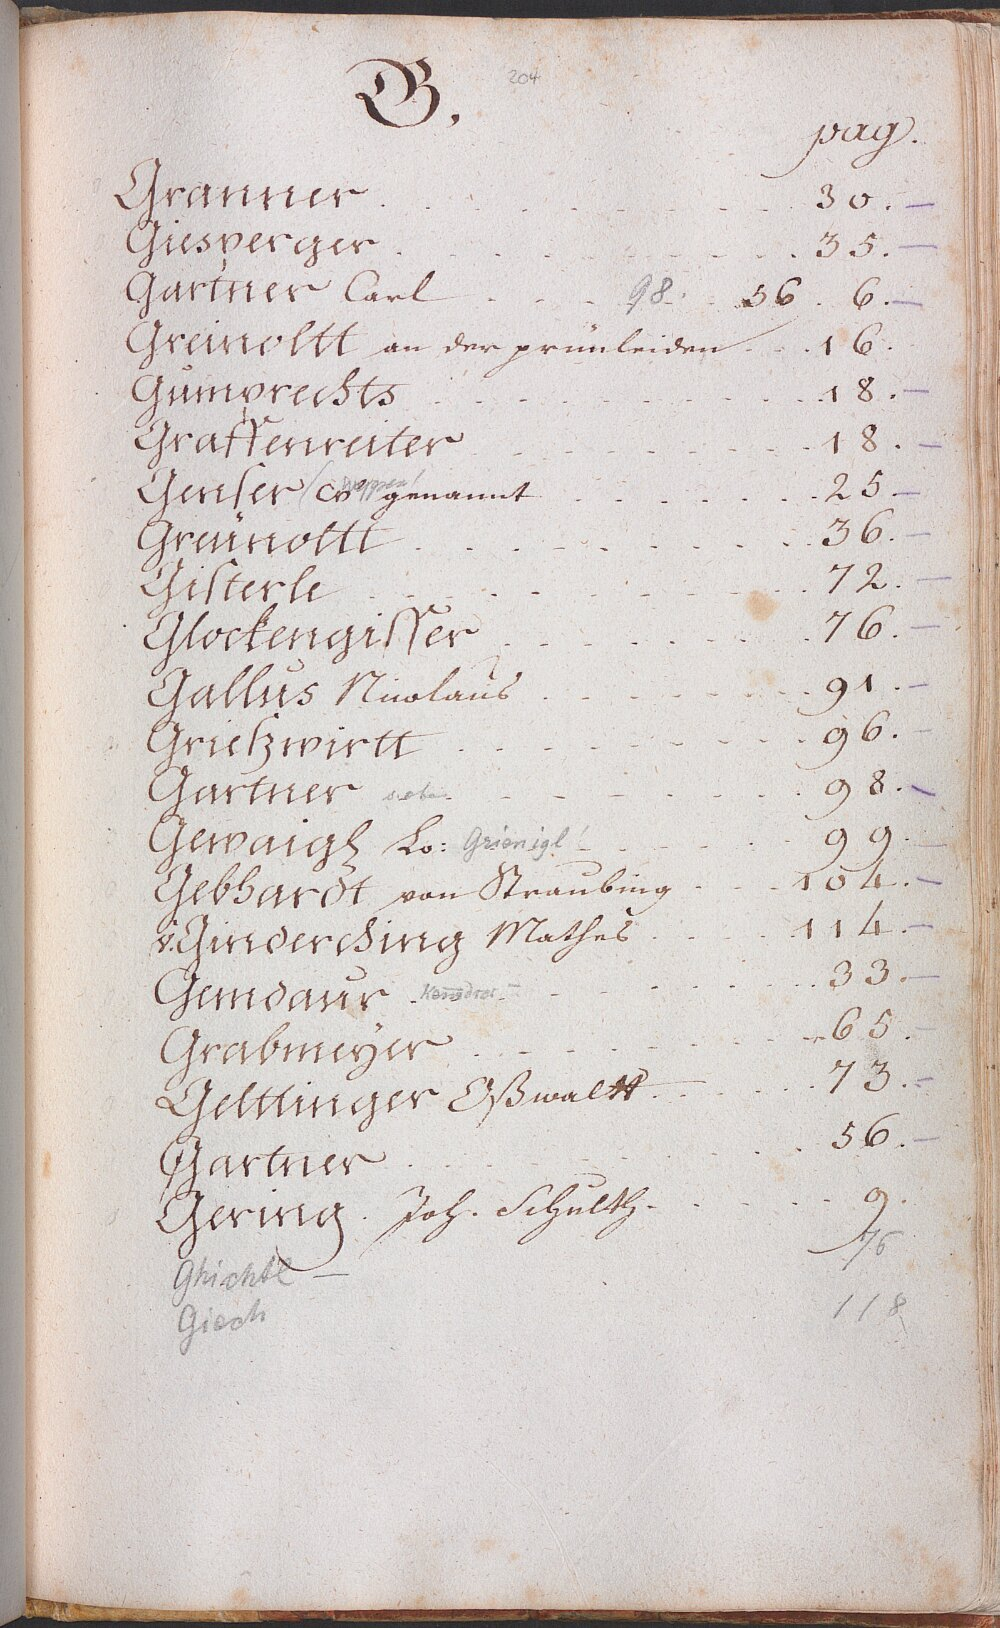 G. 204
pag.
Granner . . . . . . . . . 30. –
Giesperger . . . . . . . . . 35. –
Gartner Carl . . . . 98. . 56 . 6. –
Greinoltt an der prünleiden . . . 16.
Gumprechts . . . . . . . . . 18. –
Graffenreiter . . . . . . . . 18. –
Genser genannt . . . . . . . 25 –
Greinoltt . . . . . . . . . 36. –
Gisterle . . . . . . . . . 72. –
Glockengisser . . . . . . . . 76. –
Gallus Nicolaus . . . . . . . 91. –
Grieszwirtt . . . . . . . . 96. –
Gartner . . . . . . . . 98. –
Gewaigl Lo: Grienigl! . . . . . 99. –
Gebhardt von Straubing . . . 104. –
v. Ginderching Mathes . . . . 114. –
Gemdaur . . . . . . . . 33. –
Grabmeyer . . . . . . . . 65. –
Gelttinger Oßwaltt . . . . . 73. –
Gartner . . . . . . . . . 56. –
Gering. Joh. Schulth. . . . . . 9.
Ghichtl – 76
Giech 118